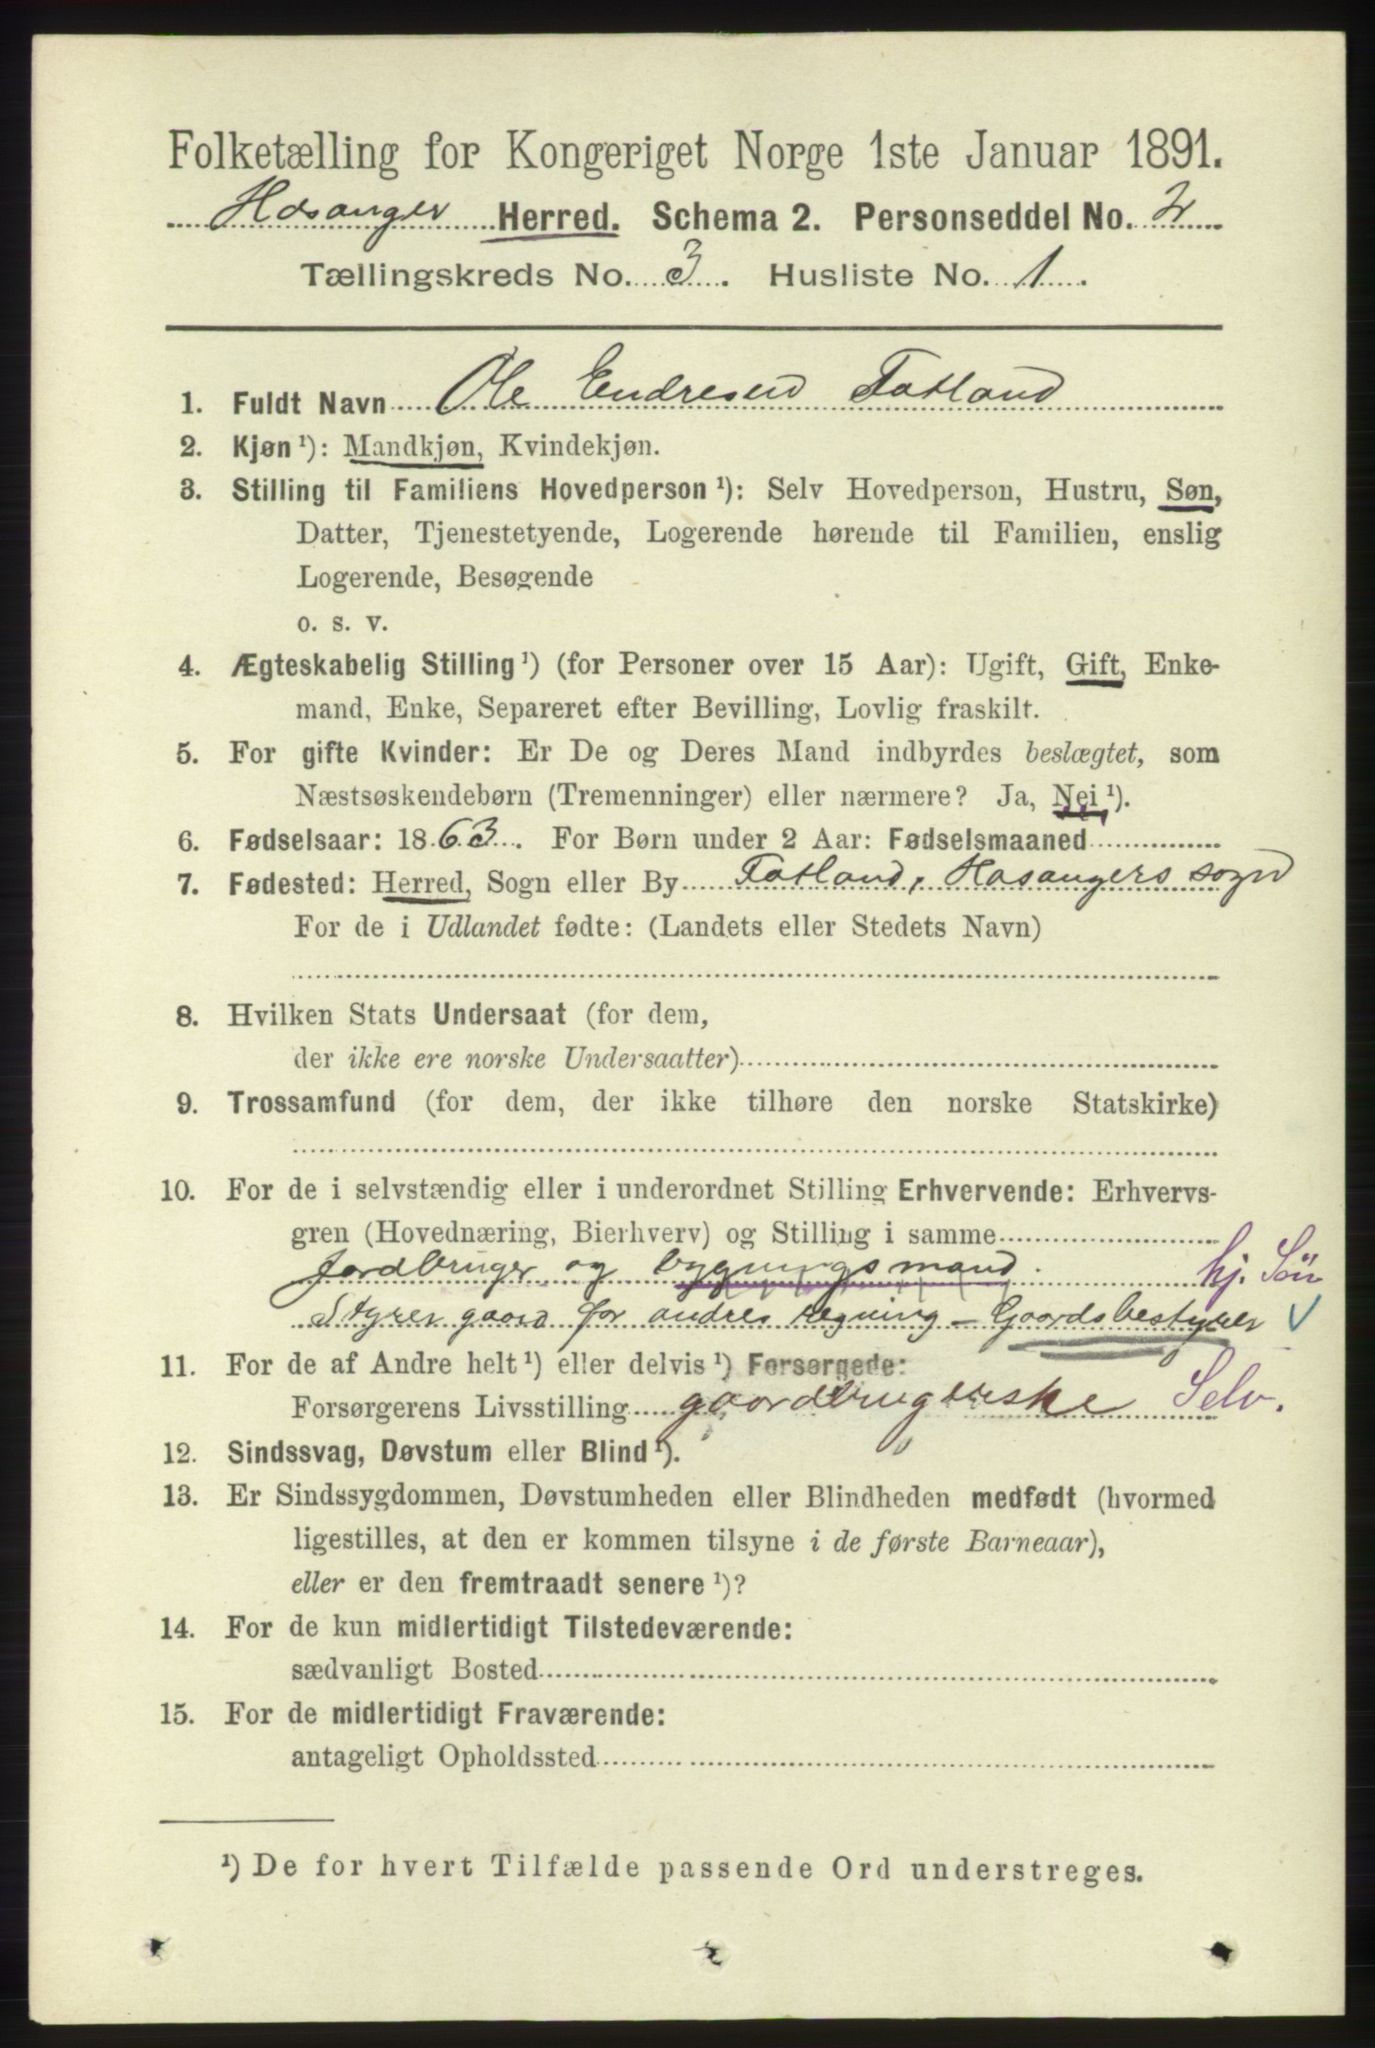 Folketælling for Kongeriget Norge 1ste Januar 1891.
Hosanger Herred. Schema 2. Personseddel No. 2
Tællingskreds No. 3. Husliste No. 1.
1. Fuldt Navn Ole Endresen Fatland
2. Kjøn¹): Mandkjøn, Kvindekjøn.
3. Stilling til Familiens Hovedperson¹): Selv Hovedperson, Hustru, Søn,
Datter, Tjenestetyende, Logerende hørende til Familien, enslig
Logerende, Besøgende
o. s. v.
4. Ægteskabelig Stilling¹) (for Personer over 15 Aar): Ugift, Gift, Enke-
mand, Enke, Separeret efter Bevilling, Lovlig fraskilt.
5. For gifte Kvinder: Er De og Deres Mand indbyrdes beslægtet, som
Næstsøskendebørn (Tremenninger) eller nærmere? Ja, Nei¹).
6. Fødselsaar: 1863. For Børn under 2 Aar: Fødselsmaaned
7. Fødested: Herred, Sogn eller By Fatland, Hosangers sogn
For de i Udlandet fødte: (Landets eller Stedets Navn)
8. Hvilken Stats Undersaat (for dem,
der ikke ere norske Undersaatter)
9. Trossamfund (for dem, der ikke tilhøre den norske Statskirke)
10. For de i selvstændig eller i underordnet Stilling Erhvervende: Erhvervs-
gren (Hovednæring, Bierhverv) og Stilling i samme
Jordbruger og bygningsmand. hj. Søn
Styrer gaard for andres regning - Gaardsbestyrer V
11. For de af Andre helt¹) eller delvis¹) Forsørgede:
Forsørgerens Livsstilling gaardbrugerske Selv.
12. Sindssvag, Døvstum eller Blind¹).
13. Er Sindssygdommen, Døvstumheden eller Blindheden medfødt (hvormed
ligestilles, at den er kommen tilsyne i de første Barneaar),
eller er den fremtraadt senere¹)?
14. For de kun midlertidigt Tilstedeværende:
sædvanligt Bosted
15. For de midlertidigt Fraværende:
antageligt Opholdssted
¹) De for hvert Tilfælde passende Ord understreges.